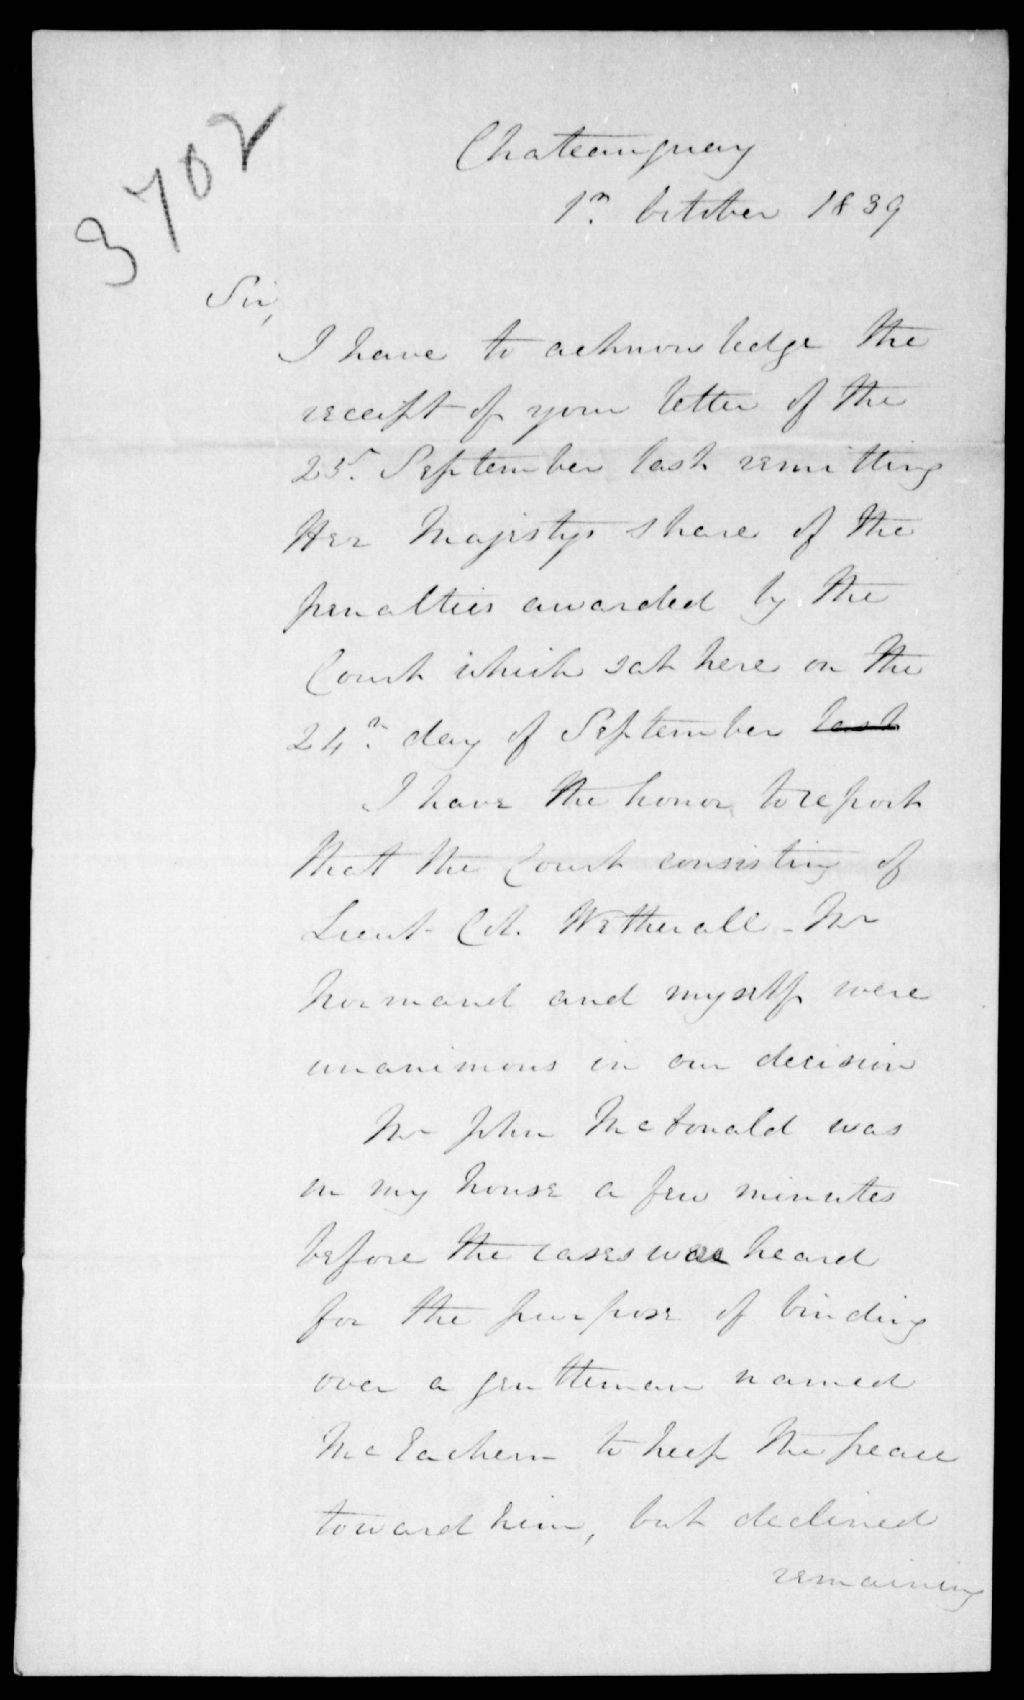 3702
Chateauguay
1st October 1839
Sir,
I have to acknowledge the
receipt of your letter of the
25th September last remitting
Her Majestys share of the
penalties awarded by the
Court which sat here on the
24th day of September last
I have the honor to report
that the Court consisting of
Lieut Col. Wetherall - Mr
Normand and myself were
unanimous in our decision
Mr John McDonald was
in my house a few minutes
before the cases were heard
for the purpose of binding
over a gentleman named
McEachern to keep the peace
toward him, but declined
remaining